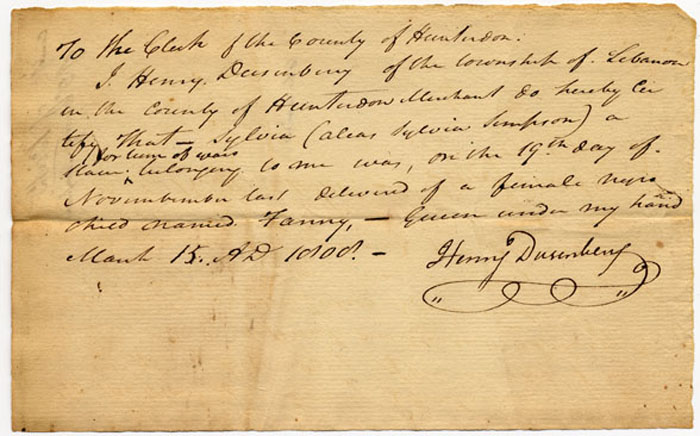 To the Clerk of the County of Hunterdon.
I, Henry Dusenbery of the township of Lebanon
in the County of Hunterdon Merchant do hereby Cer
tify that — Sylvia (alias Sylvia Simpson) a
for term of years
slave ^ belonging to me was, on the 19th day of
Novembember last delivered of a female negro
child named Fanny, — Given under my hand
March 15. AD 1808. —
Henry Dusenbery